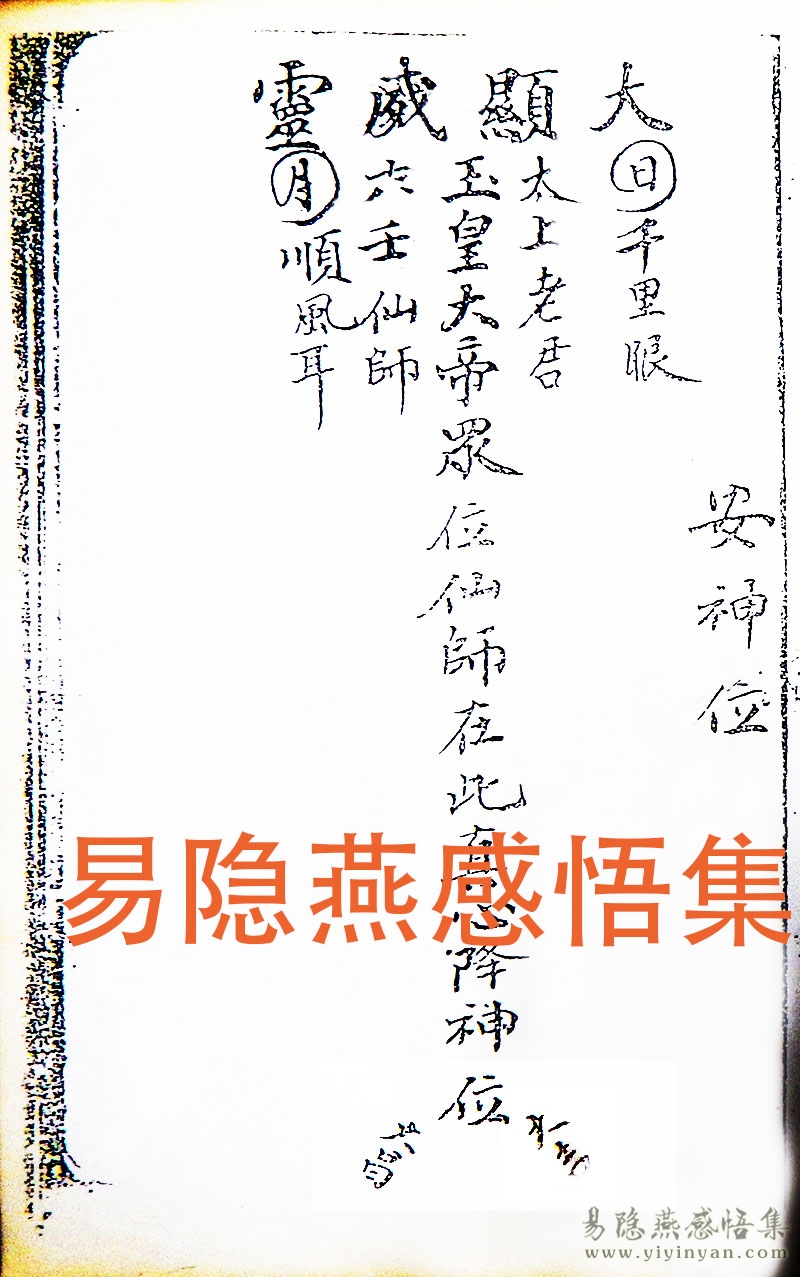 安神位
大顯威靈
日千里眼
太上老君
玉皇大帝眾位仙師在此真心降神位
六壬仙師
月順風耳
易隐燕感悟集
易隐燕感悟集
www.yiyinyan.com